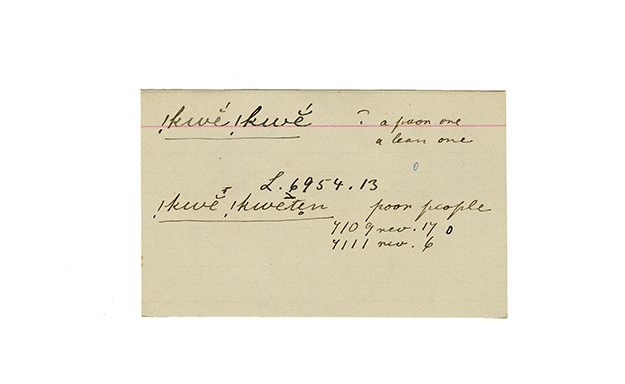 !kwĕ́ !kwĕ́ ? a poor one
a lean one
0
L. 6954.13
!kwĕ !kwĕtẹn poor people
7109 rev. 17 0
7111 rev. 6